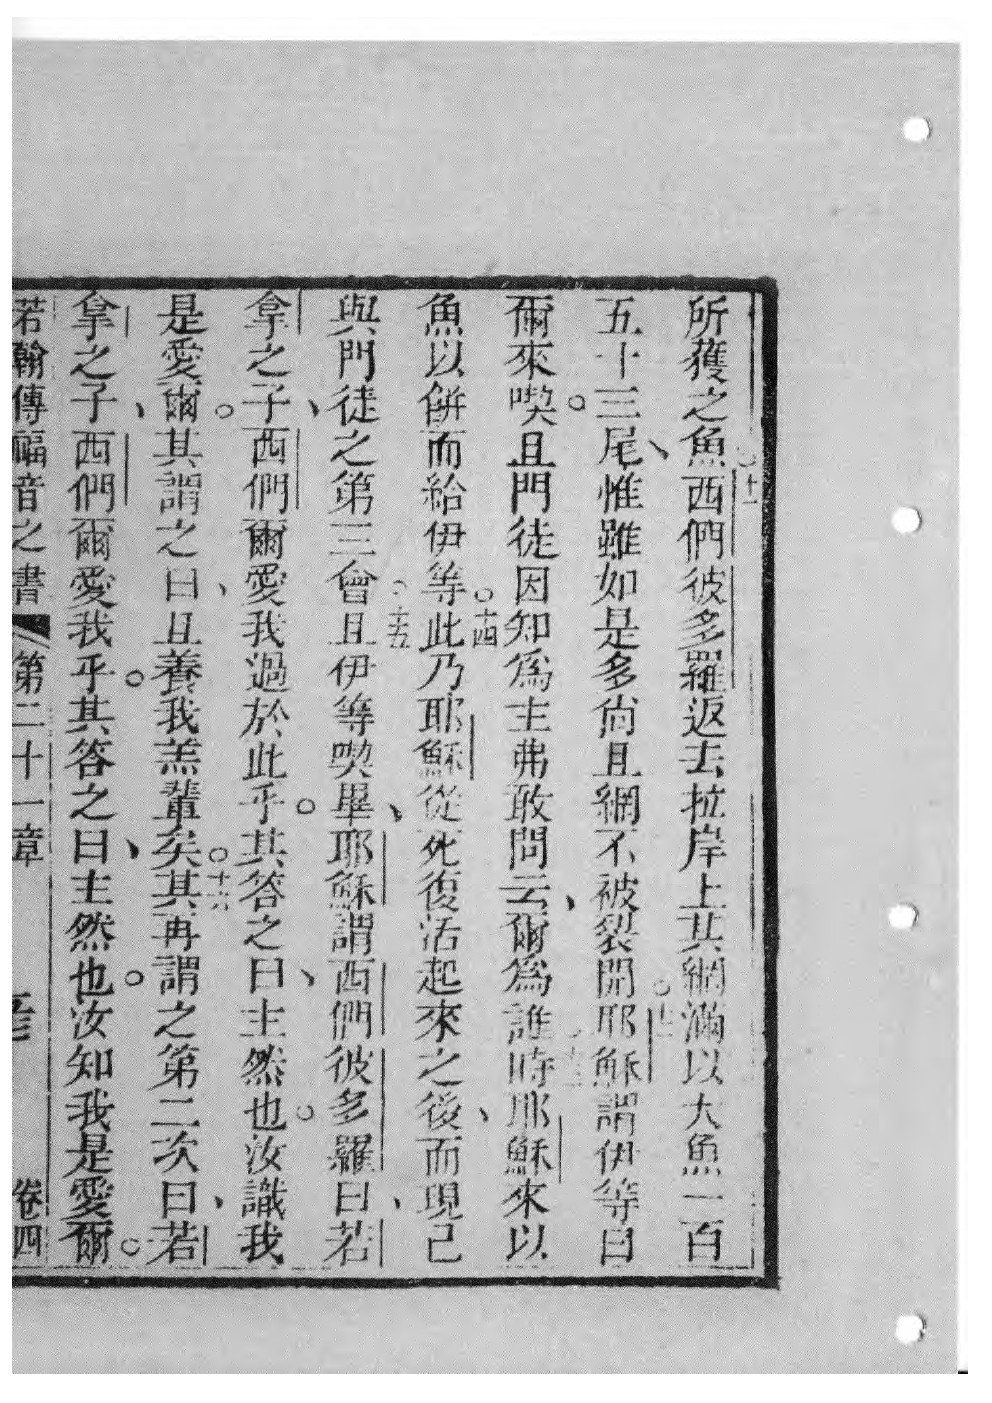 所獲之魚。十一西們彼多羅返去拉岸上其網滿以大魚一百
五十三尾、惟雖如是多尙且網不被裂開。十二耶穌謂伊等曰
爾來喫。且門徒因知爲主弗敢問云、爾爲誰。十三時耶穌來以
魚以餅而給伊等。十四此乃耶穌從死復活起來之後、而現己
與門徒之第三會。十五且伊等喫畢、耶穌謂西們彼多羅曰、若
拿之子、西們爾愛我過於此乎。其答之曰、主然也。汝識我
是愛爾。其謂之曰、且養我羔輩矣。十六其再謂之第二次曰、若
拿之子、西們爾愛我乎。其答之曰、主然也。汝知我是愛爾。
若翰傳福音之書 第二十一章 卷四